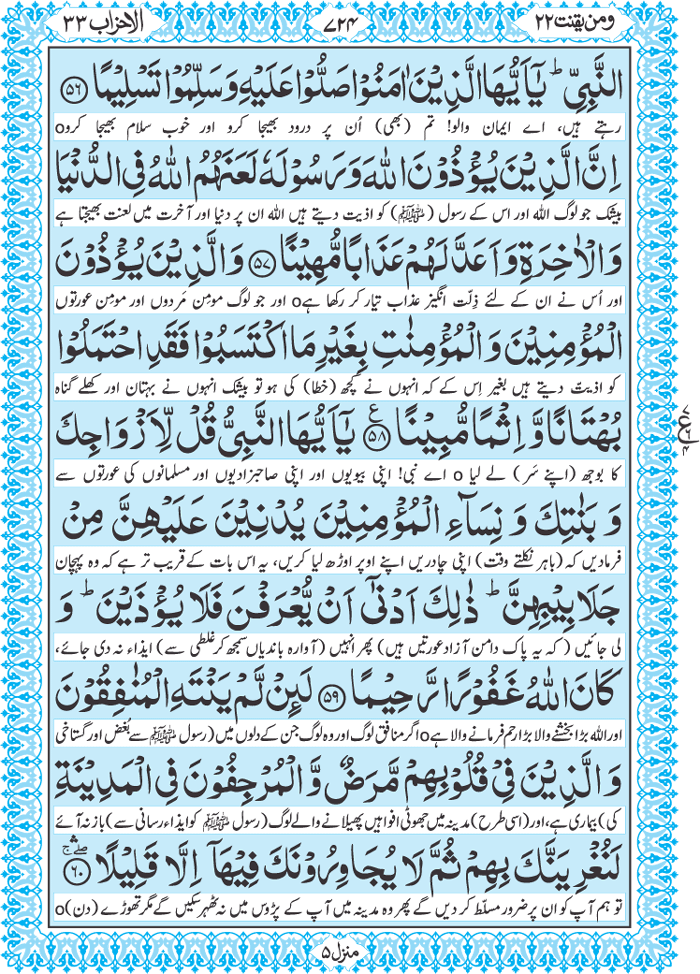 ومن يقنت ٢٢ ٧٢٤ الاحزاب ٣٣
النَّبِيِّ ؕ يٰۤاَيُّهَا الَّذِيْنَ اٰمَنُوْا صَلُّوْا عَلَيْهِ وَسَلِّمُوْا تَسْلِيْمًا ﴿٥٦﴾
رہتے ہیں، اے ایمان والو! تم (بھی) اُن پر درود بھیجا کرو اور خوب سلام بھیجا کروo
اِنَّ الَّذِيْنَ يُؤْذُوْنَ اللّٰهَ وَ رَسُوْلَهٗ لَعَنَهُمُ اللّٰهُ فِي الدُّنْيَا
بیشک جو لوگ اللہ اور اس کے رسول (ﷺ) کو اذیت دیتے ہیں اللہ ان پر دنیا اور آخرت میں لعنت بھیجتا ہے
وَالْاٰخِرَةِ وَاَعَدَّ لَهُمْ عَذَابًا مُّهِيْنًا ﴿٥٧﴾ وَالَّذِيْنَ يُؤْذُوْنَ
اور اُس نے ان کے لئے ذِلّت انگیز عذاب تیار کر رکھا ہےo اور جو لوگ مومِن مَردوں اور مومِن عورتوں
الْمُؤْمِنِيْنَ وَالْمُؤْمِنٰتِ بِغَيْرِ مَا اكْتَسَبُوْا فَقَدِ احْتَمَلُوْا
کو اذیت دیتے ہیں بغیر اِس کے کہ انہوں نے کچھ (خطا) کی ہو تو بیشک انہوں نے بہتان اور کھلے گناہ
بُهْتَانًا وَّ اِثْمًا مُّبِيْنًا ﴿٥٨﴾ ع يٰۤاَيُّهَا النَّبِيُّ قُلْ لِّاَزْوَاجِكَ
کا بوجھ (اپنے سَر) لے لیا o اے نبی! اپنی بیویوں اور اپنی صاحبزادیوں اور مسلمانوں کی عورتوں سے
وَ بَنٰتِكَ وَ نِسَآءِ الْمُؤْمِنِيْنَ يُدْنِيْنَ عَلَيْهِنَّ مِنْ
فرمادیں کہ (باہر نکلتے وقت) اپنی چادریں اپنے اوپر اوڑھ لیا کریں، یہ اس بات کے قریب تر ہے کہ وہ پہچان
جَلَابِيْبِهِنَّ ؕ ذٰلِكَ اَدْنٰۤى اَنْ يُّعْرَفْنَ فَلَا يُؤْذَيْنَ ؕ وَ
لی جائیں ( کہ یہ پاک دامن آزاد عورتیں ہیں) پھر انہیں (آوارہ باندیاں سمجھ کر غلطی سے) ایذاء نہ دی جائے،
كَانَ اللّٰهُ غَفُوْرًا رَّحِيْمًا ﴿٥٩﴾ لَئِنْ لَّمْ يَنْتَهِ الْمُنٰفِقُوْنَ
اور اللہ بڑا بخشنے والا بڑا رحم فرمانے والا ہےo اگر منافق لوگ اور وہ لوگ جن کے دلوں میں (رسول ﷺ سے بُغض اور گستاخی
وَالَّذِيْنَ فِيْ قُلُوْبِهِمْ مَّرَضٌ وَّ الْمُرْجِفُوْنَ فِي الْمَدِيْنَةِ
کی) بیماری ہے، اور (اسی طرح) مدینہ میں جھوٹی افواہیں پھیلانے والے لوگ (رسول ﷺ کو ایذاء رسانی سے) باز نہ آئے
لَنُغْرِيَنَّكَ بِهِمْ ثُمَّ لَا يُجَاوِرُوْنَكَ فِيْهَاۤ اِلَّا قَلِيْلًا ﴿٦٠﴾
تو ہم آپ کو ان پر ضرور مسلّط کر دیں گے پھر وہ مدینہ میں آپ کے پڑوس میں نہ ٹھہر سکیں گے مگر تھوڑے (دن)o
منزل ٥